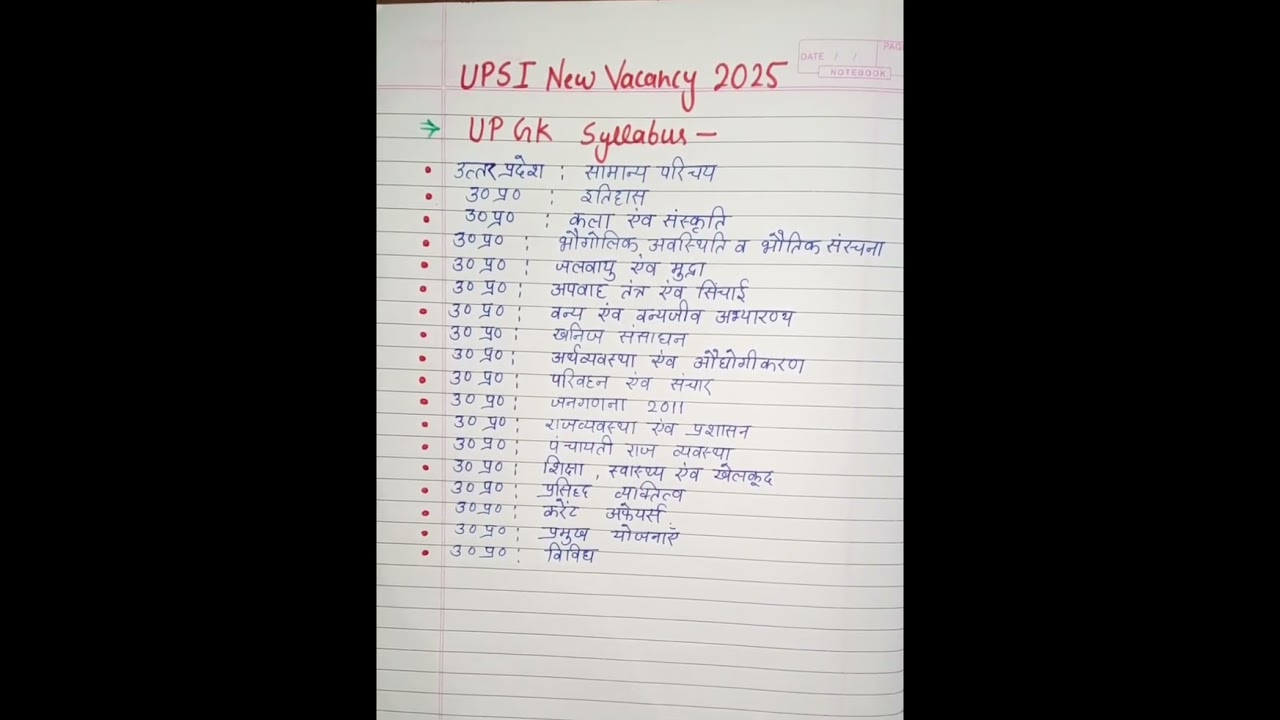 DATE / / PAG
NOTEBOOK
UPSI New Vacancy 2025
⇒ UP GK Syllabus -
• उत्तर प्रदेश : सामान्य परिचय
• उ०प्र० : इतिहास
• उ०प्र० : कला एंव संस्कृति
• उ०प्र० : भौगोलिक अवस्थिति व भौतिक संरचना
• उ०प्र० : जलवायु एंव मुद्रा
• उ०प्र० : अपवाह तंत्र एंव सिंचाई
• उ०प्र० : वन्य एंव वन्यजीव अभ्यारण्य
• उ०प्र० : खनिज संसाधन
• उ०प्र० : अर्थव्यवस्था एंव औद्योगीकरण
• उ०प्र० : परिवहन एंव संचार
• उ०प्र० : जनगणना 2011
• उ०प्र० : राजव्यवस्था एंव प्रशासन
• उ०प्र० : पंचायती राज व्यवस्था
• उ०प्र० : शिक्षा , स्वास्थ्य एंव खेलकूद
• उ०प्र० : प्रसिद्द व्यक्तित्व
• उ०प्र० : करेंट अफेयर्स
• उ०प्र० : प्रमुख योजनाएँ
• उ०प्र० : विविध